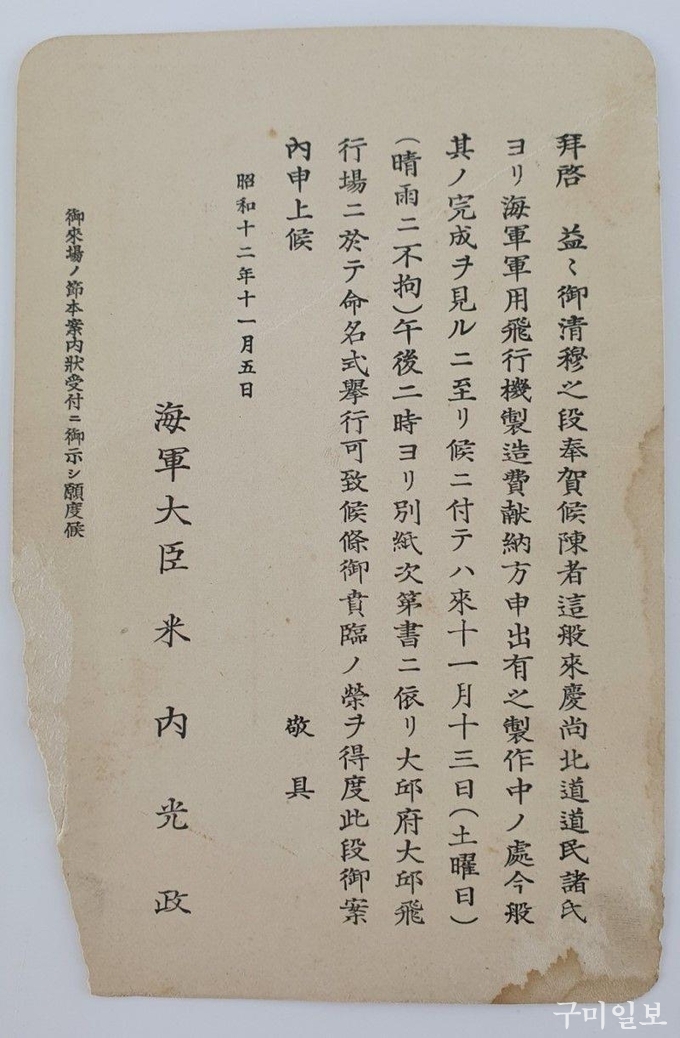 拜啓　益〻御淸穆之段奉賀候陳者這般來慶尚北道道民諸氏
ヨリ海軍軍用飛行機製造費献納方申出有之製作中ノ處今般
其ノ完成ヲ見ルニ至リ候ニ付テハ來十一月十三日(土曜日)
(晴雨ニ不拘)午後二時ヨリ別紙次第書ニ依リ大邱府大邱飛
行場ニ於テ命名式擧行可致候條御賁臨ノ榮ヲ得度此段御案
內申上候　敬具
昭和十二年十一月五日
海軍大臣 米內光政
御來場ノ節本案內狀受付ニ御示シ願度候
구미일보